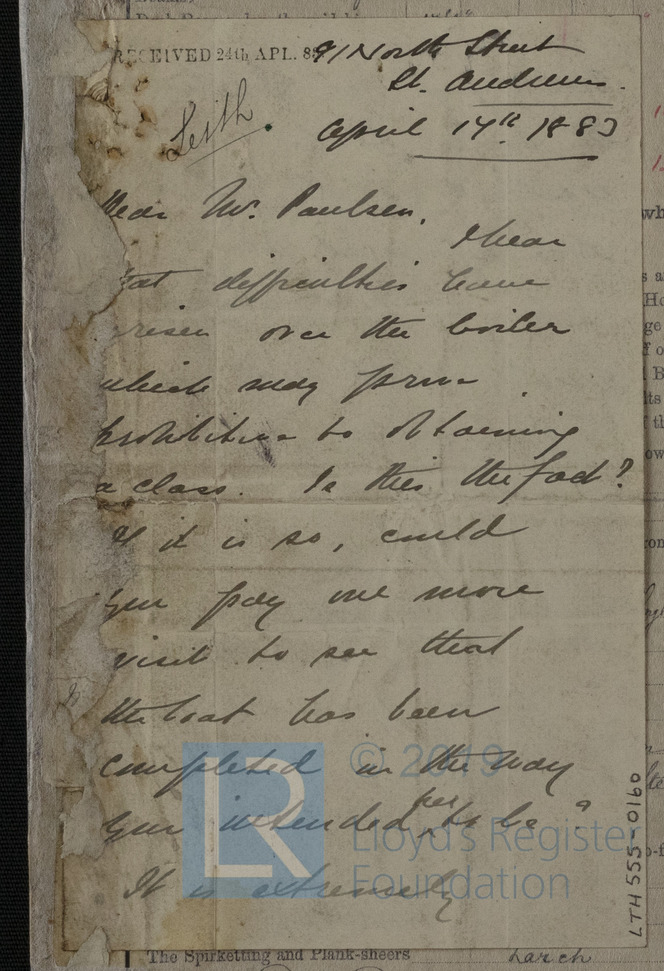 RECEIVED 24th APL. 83
91 North Street
St. Andrews.
Leith
April 17th 1883
Dear Mr. Paulsen,
I hear
that difficulties have
arisen over the boiler
which may prove
prohibitive to obtaining
a class. Is this the fact?
If it is so, could
you pay one more
visit to see that
the boat has been
completed in the way
you intended her to be?
It is extremely
© 2019
Lloyd's Register
Foundation
LR
LTH555-0160
The Spirketting and Plank-sheers
Larch